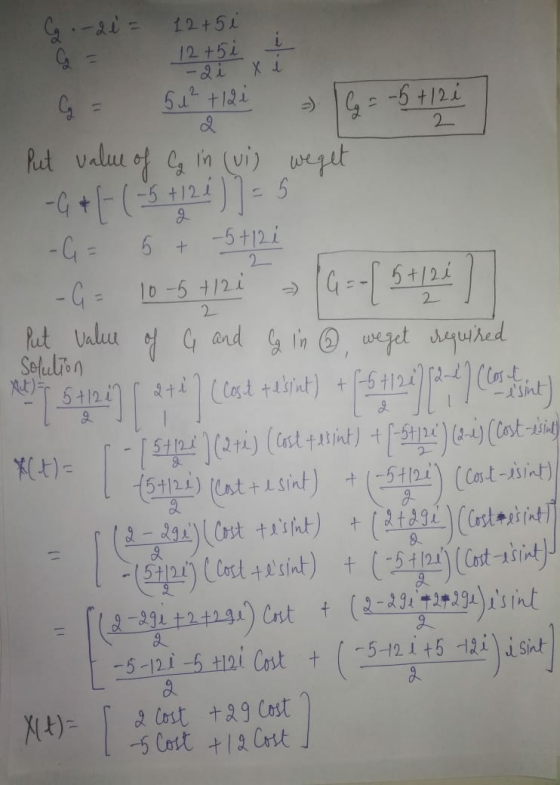 C₂ · -2i = 12+5i
C₂ = (12+5i)/(-2i) × i/i
C₂ = (5i²+12i)/2 ⇒ C₂ = (-5+12i)/2
Put value of C₂ in (vi) weget
-C₁ + [-((-5+12i)/2)] = 5
-C₁ = 5 + (-5+12i)/2
-C₁ = (10-5+12i)/2 ⇒ C₁ = -[(5+12i)/2]
Put value of C₁ and C₂ in ②, weget required
Solution
X(t)= -[(5+12i)/2] [2+i; 1] (Cost + isint) + [(-5+12i)/2] [2-i; 1] (Cost - isint)
X(t) = [-[(5+12i)/2](2+i)(Cost+isint) + [(-5+12i)/2](2-i)(Cost-isint)
-((5+12i)/2)(Cost+isint) + ((-5+12i)/2)(Cost-isint)]
= [((2-29i)/2)(Cost+isint) + ((2+29i)/2)(Cost-isint)
-((5+12i)/2)(Cost+isint) + ((-5+12i)/2)(Cost-isint)]
= [((2-29i+2+29i)/2) Cost + ((2-29i-2-29i)/2) isint
(-5-12i-5+12i)/2 Cost + ((-5-12i+5-12i)/2) isint]
X(t) = [2Cost + 29Cost
-5Cost + 12Cost]